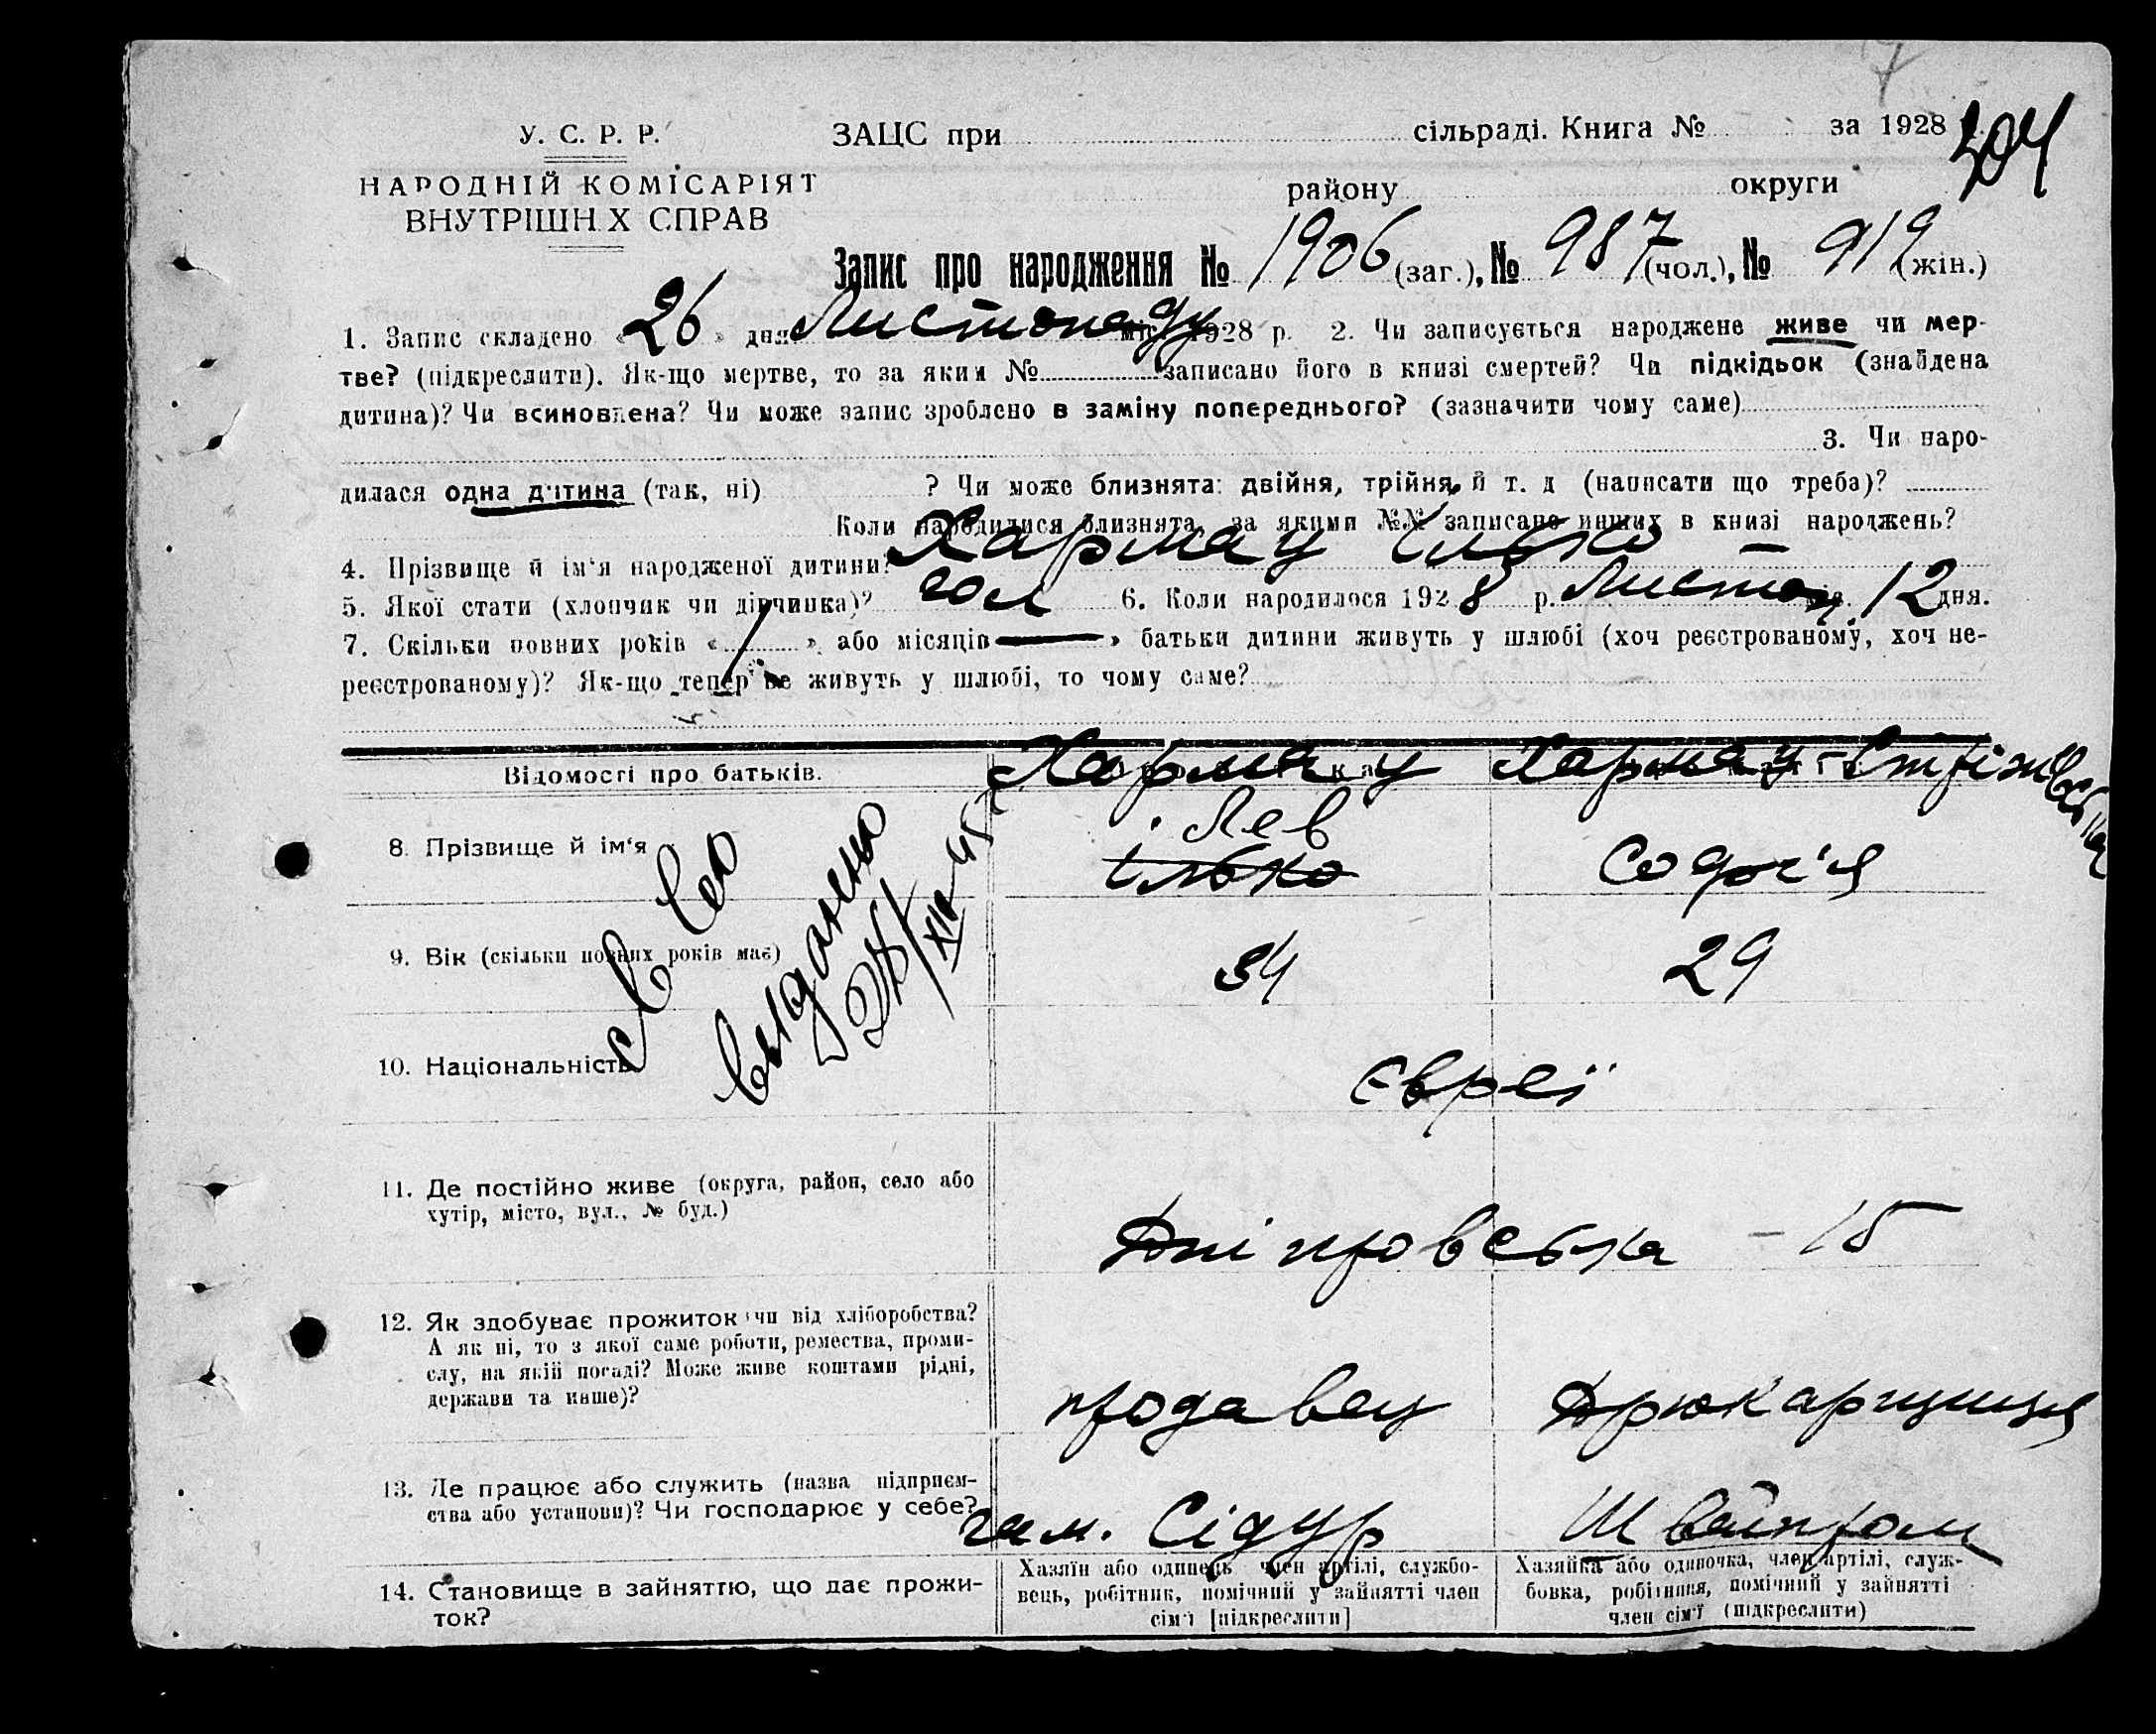 У. С. Р. Р.
ЗАЦС при сільраді. Книга № за 1928
204
НАРОДНІЙ КОМІСАРІЯТ
району округи
ВНУТРІШН Х СПРАВ
Запис про народження № 1906 (заг.), № 987 (чол.), № 919 (жін.)
1. Запис складено « 26 » дня Листопаду міс. 1928 р. 2. Чи записується народжене живе чи мер-
тве? (підкреслити). Як-що мертве, то за яким № записано його в книзі смертей? Чи підкідьок (знайдена
дитина)? Чи всиновлена? Чи може запис зроблено в заміну попереднього? (зазначити чому саме)
3. Чи наро-
дилася одна дитина (так, ні) ? Чи може близнята: двійня, трійня й т. д (написати що треба)?
Коли народилися близнята, за якими №№ записано инших в книзі народжень?
4. Прізвище й ім'я народженої дитини? Хармац Ілько
5. Якої стати (хлопчик чи дівчинка)? чол 6. Коли народилося 192 8 р. Листоп. 12 дня.
7. Скільки повних років « 1 » або місяців » батьки дитини живуть у шлюбі (хоч реєстрованому, хоч не-
реєстрованому)? Як-що тепер не живуть у шлюбі, то чому саме?
Відомості про батьків.
Хармац Хармац-
8. Прізвище й ім'я
Лев
Ілько Софія
9. Вік (скільки повних років має) 34 29
видано
XII 45
10. Національність Євреї
11. Де постійно живе (округа, район, село або
хутір, місто, вул., № буд.)
Дніпровська - 15
12. Як здобуває прожиток чи від хліборобства?
А як ні, то з якої саме роботи, ремества, проми-
слу, на якій посаді? Може живе коштами рідні,
держави та инше)?
продавец Друкарщиця
13. Де працює або служить (назва підприєм-
ства або установи)? Чи господарює у себе?
Сідур Швейпром
14. Становище в зайняттю, що дає прожи-
ток?
Хазяїн або одинець член артілі, службо-
вець, робітник, помічний у зайнятті член
сім'ї [підкреслити]
Хазяйка або одиночка, член артілі, служ-
бовка, робітниця, помічний у зайнятті
член сім'ї (підкреслити)